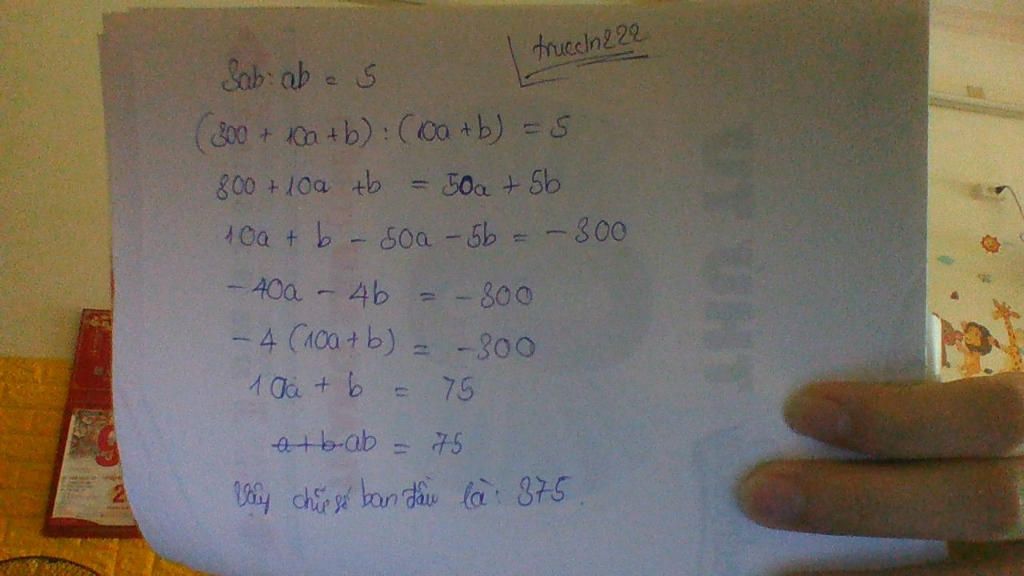 trucln222
3ab : ab = 5
(300 + 10a + b) : (10a + b) = 5
300 + 10a + b = 50a + 5b
10a + b - 50a - 5b = -300
-40a - 4b = -300
-4 (10a + b) = -300
10a + b = 75
a + b ab = 75
Vậy chữ số ban đầu là: 375.